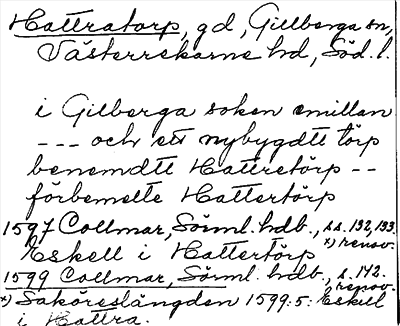 Hattratorp, gd, Gillberga sn,
Västerrekarne hd, Söd. l.
i Gilberga soken emillan
--- och ett nybygdtt törp
benemdtt Hattretörp --
förbemelte Hattertörp
1597 Collmar, Sörml. hdb., s.s. 132, 133.
Eskell i Hattertörp x) renov.
1599 Collmar, Sörml. hdb., s. 142.
renov.
x) Saköreslängden 1599:5: Eskell
i Hattra.